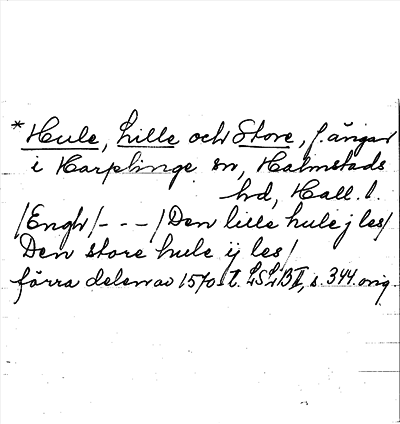 * Hule, Lille och Store, f. ängar
i Harplinge sn, Halmstads
hd, Hall. l.
/Engh/ - - - / Den lille hule j les/
Den store hule ij les/
förra delen av 1570-t. LSLB II, s. 344. orig.